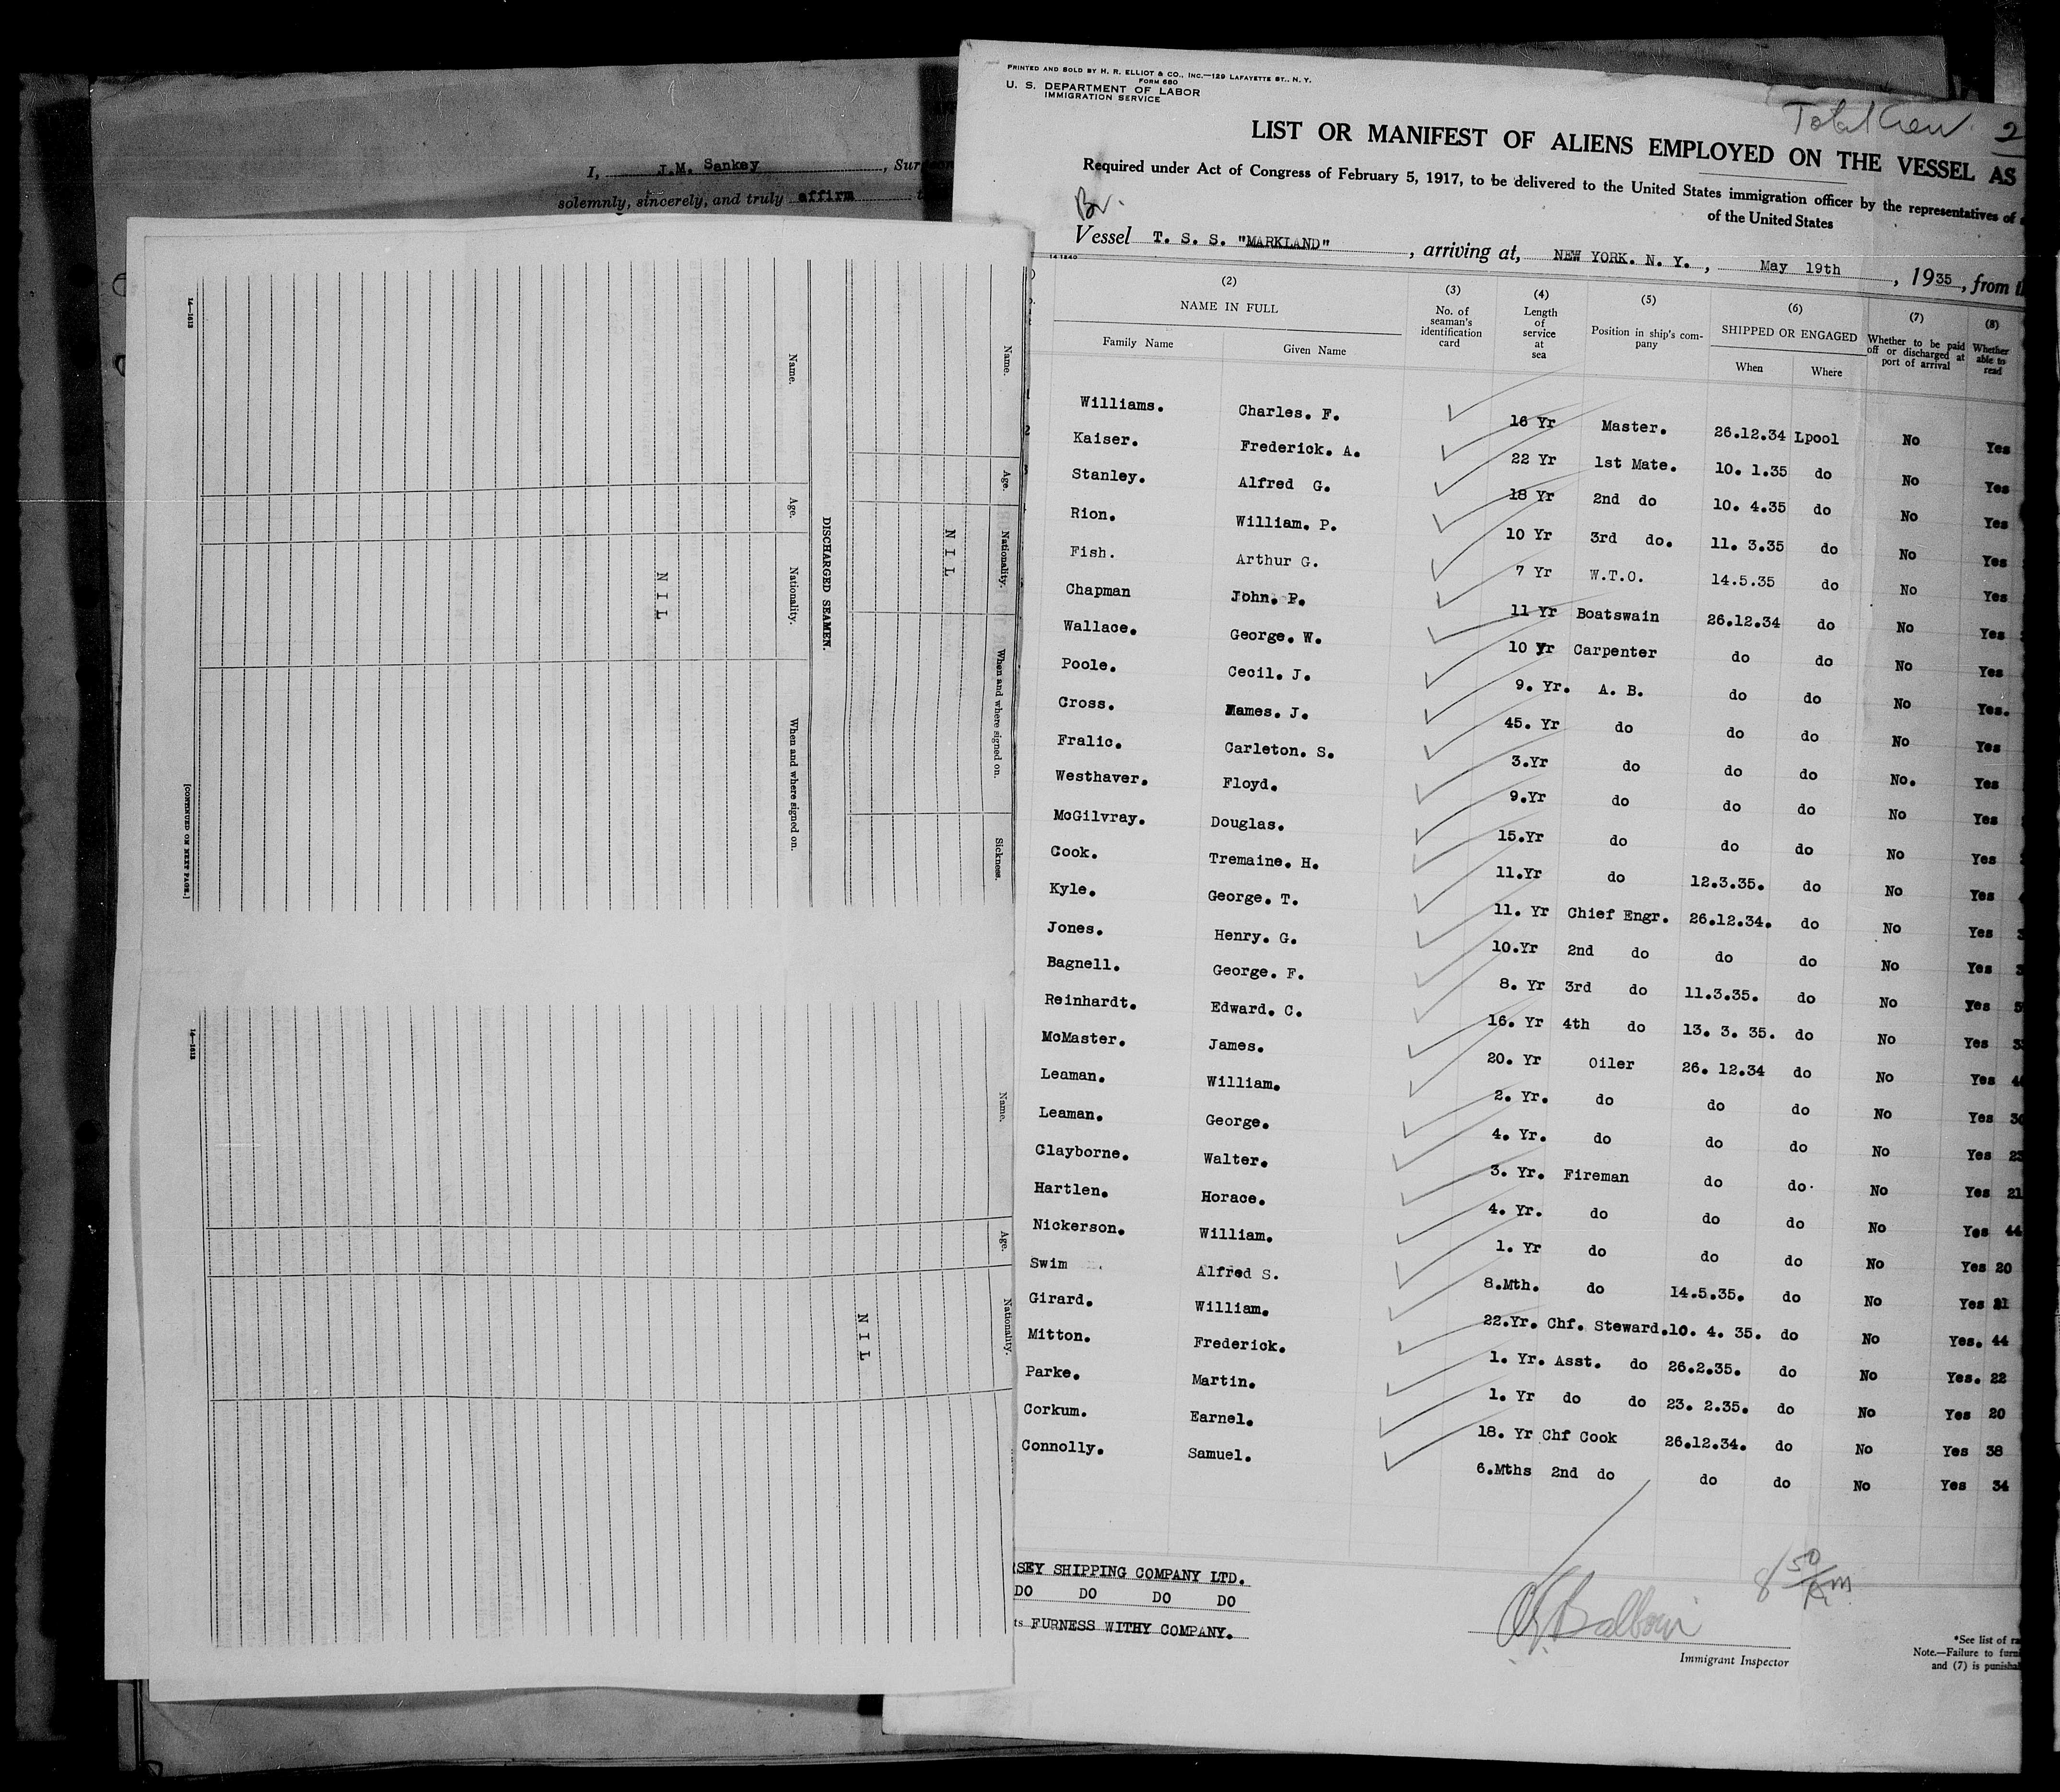 I, J.M. Sankey, Sur
solemnly, sincerely, and truly affirm
14—1613
Name.
Age.
Nationality.
When and where signed on.
Sickness.
NIL
DISCHARGED SEAMEN.
Name.
Age.
Nationality.
When and where signed on.
NIL
[CONTINUED ON NEXT PAGE.]
14—1613
Name.
Age.
Nationality.
NIL
PRINTED AND SOLD BY H. R. ELLIOT & CO., INC.—129 LAFAYETTE ST., N. Y.
FORM 680
U. S. DEPARTMENT OF LABOR
IMMIGRATION SERVICE
Total Crew. 2
LIST OR MANIFEST OF ALIENS EMPLOYED ON THE VESSEL AS
Required under Act of Congress of February 5, 1917, to be delivered to the United States immigration officer by the representatives of
of the United States
Br.
Vessel T. S. S. "MARKLAND", arriving at, NEW YORK. N. Y., May 19th, 1935, from
14 1240
(2) (3) (4) (5) (6) (7) (8)
NAME IN FULL
Family Name Given Name
No. of seaman's identification card
Length of service at sea
Position in ship's company
SHIPPED OR ENGAGED
When Where
Whether to be paid off or discharged at port of arrival
Whether able to read
1 Williams. Charles. F. 16 Yr Master. 26.12.34 Lpool No Yes
2 Kaiser. Frederick. A. 22 Yr 1st Mate. 10. 1.35 do No Yes
Stanley. Alfred G. 18 Yr 2nd do 10. 4.35 do No Yes
Rion. William. P. 10 Yr 3rd do. 11. 3.35 do No Yes
Fish. Arthur G. 7 Yr W.T.O. 14.5.35 do No Yes
Chapman John. P. 11 Yr Boatswain 26.12.34 do No Yes
Wallace. George. W. 10 Yr Carpenter do do No Yes
Poole. Cecil. J. 9. Yr. A. B. do do No Yes.
Cross. Mames. J. 45. Yr do do do No Yes
Fralic. Carleton. S. 3.Yr do do do No. Yes
Westhaver. Floyd. 9.Yr do do do No Yes
McGilvray. Douglas. 15.Yr do do do No Yes
Cook. Tremaine. H. 11.Yr do 12.3.35. do No Yes
Kyle. George. T. 11. Yr Chief Engr. 26.12.34. do No Yes
Jones. Henry. G. 10.Yr 2nd do do do No Yes
Bagnell. George. F. 8. Yr 3rd do 11.3.35. do No Yes
Reinhardt. Edward. C. 16. Yr 4th do 13. 3. 35. do No Yes
McMaster. James. 20. Yr Oiler 26. 12.34 do No Yes
Leaman. William. 2. Yr. do do do No Yes
Leaman. George. 4. Yr. do do do No Yes 23
Clayborne. Walter. 3. Yr. Fireman do do No Yes 21
Hartlen. Horace. 4. Yr. do do do No Yes 44
Nickerson. William. 1. Yr do do do No Yes 20
Swim Alfred S. 8.Mth. do 14.5.35. do No Yes 21
Girard. William. 22.Yr. Chf. Steward. 10. 4. 35. do No Yes. 44
Mitton. Frederick. 1. Yr. Asst. do 26.2.35. do No Yes. 22
Parke. Martin. 1. Yr do do 23. 2.35. do No Yes 20
Corkum. Earnel. 18. Yr Chf Cook 26.12.34. do No Yes 38
Connolly. Samuel. 6.Mths 2nd do do do No Yes 34
SEY SHIPPING COMPANY LTD.
DO DO DO DO
ts FURNESS WITHY COMPANY.
8 50 Am
Immigrant Inspector
*See list of ra
Note.—Failure to furni
and (7) is punishal